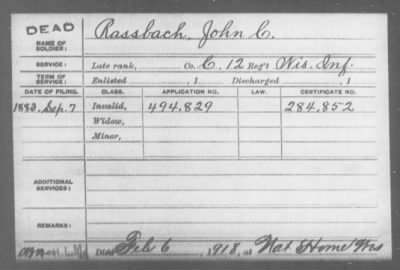 DEAD
NAME OF SOLDIER: Rassbach John C.
SERVICE: Late rank, Co. C, 12 Reg't Wis. Inf.
TERM OF SERVICE: Enlisted , 1 Discharged , 1
DATE OF FILING. CLASS. APPLICATION NO. LAW. CERTIFICATE NO.
1883, Sep. 7 Invalid, 494.829 284,852
Widow,
Minor,
ADDITIONAL SERVICES:
REMARKS:
Died Feb 6, 1918, at Nat Home Wis